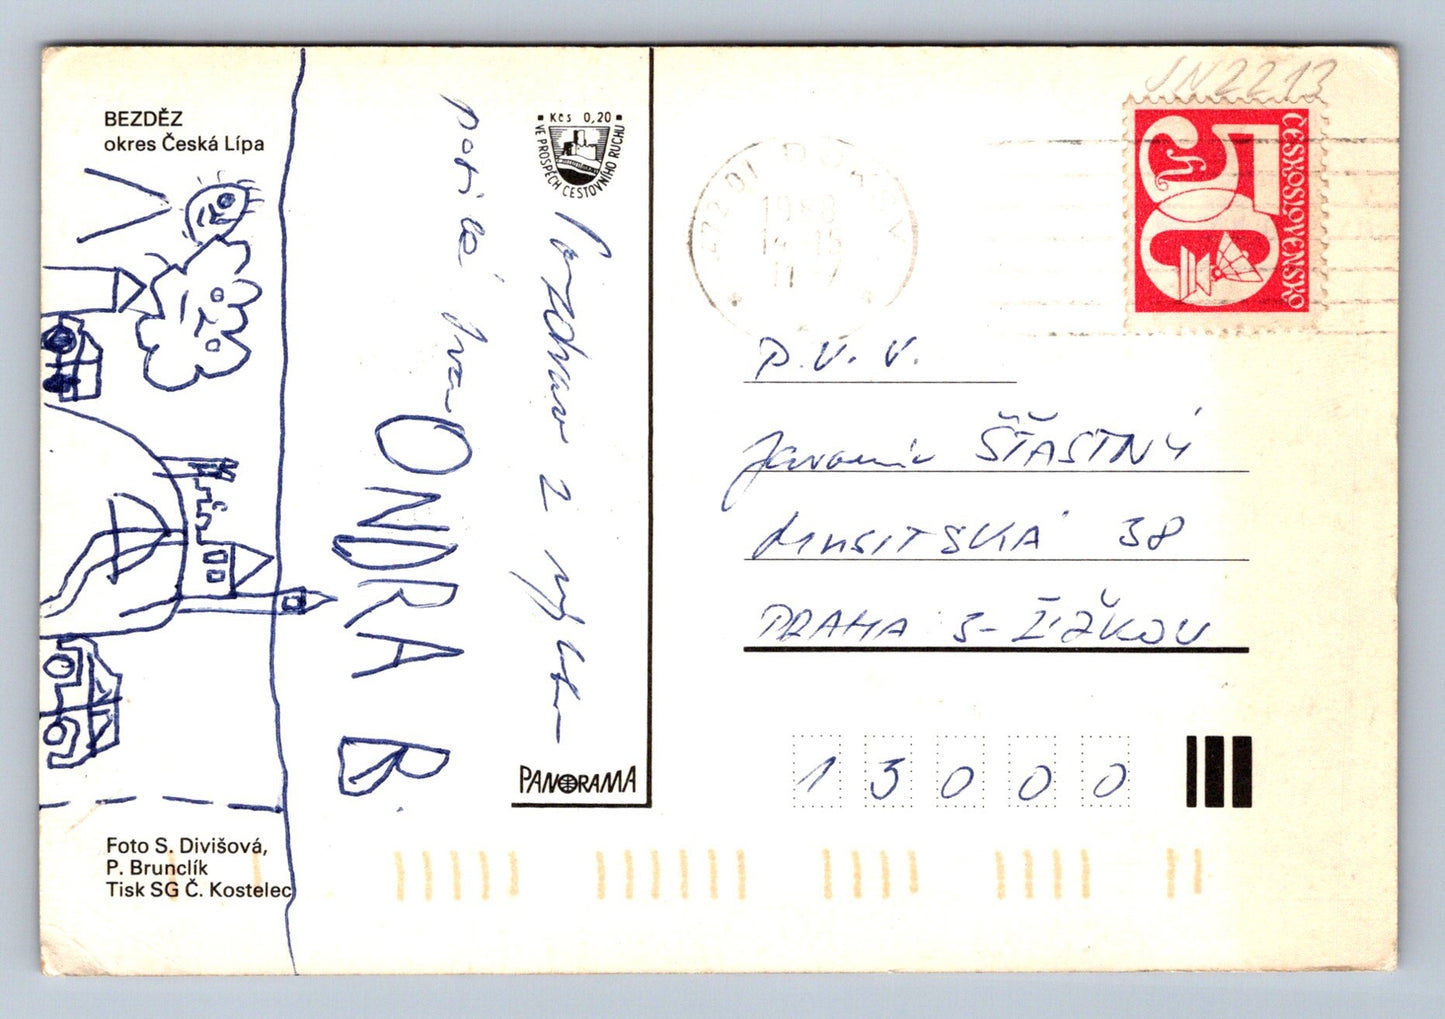 BEZDĚZ
okres Česká Lípa
Kčs 0,20
VE PROSPĚCH CESTOVNÍHO RUCHU
Pozdrav z výletu
posílá Ivan
ONDRA B.
PANORAMA
Foto S. Divišová,
P. Brunclík
Tisk SG Č. Kostelec
JN2213
ČESKOSLOVENSKO
50 h
472 01
1988
P. V. V.
Jaromír ŠŤASTNÝ
HUSITSKÁ 38
PRAHA 3-ŽIŽKOV
13000